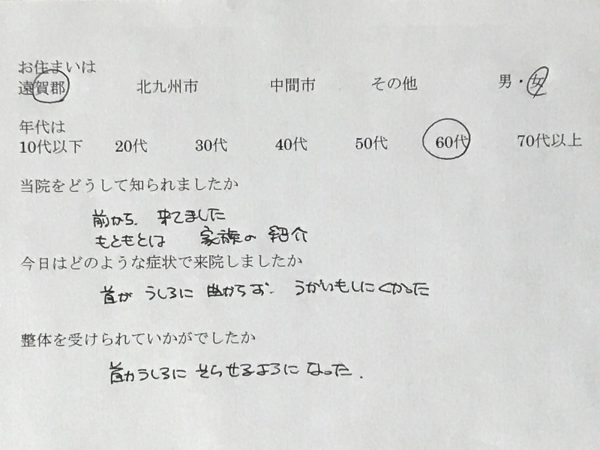 お住まいは
遠賀郡 北九州市 中間市 その他 男・女
年代は
10代以下 20代 30代 40代 50代 60代 70代以上
当院をどうして知られましたか
前から、来てました
もともとは 家族の 紹介
今日はどのような症状で来院しましたか
首が うしろに 曲がらず、うがいもしにくかった
整体を受けられていかがでしたか
首がうしろに そらせるように なった.